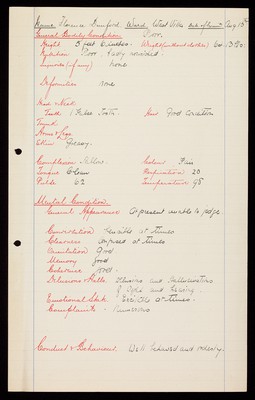 Name Florence Dunford. Ward West Villa Date of Admit Aug 13th
General Bodily Condition Poor.
Height 5 feet 2 inches. Weight (without clothes) 6st. 13 lbs.
Nutrition Poor. badly nourished.
Injuries (if any) none
Deformities none
Head & Neck.
Teeth 1 False Tooth. Hair Good Condition
Throat.
Arms & Legs.
Skin Greasy.
Complexion Sallow. Colour Fair
Tongue Clean Respiration 20
Pulse 62 Temperature 98
Mental Condition.
General Appearance At present unable to judge.
Conversation Sensible at times
Clearness confused at times
Orientation Good
Memory Good
Coherence Good.
Delusions & Halls. Delusions and Hallucinations
of Sight and hearing.
Emotional State Excitable at times.
Complaints. Numerous
Conduct & Behaviour. Well behaved and orderly.